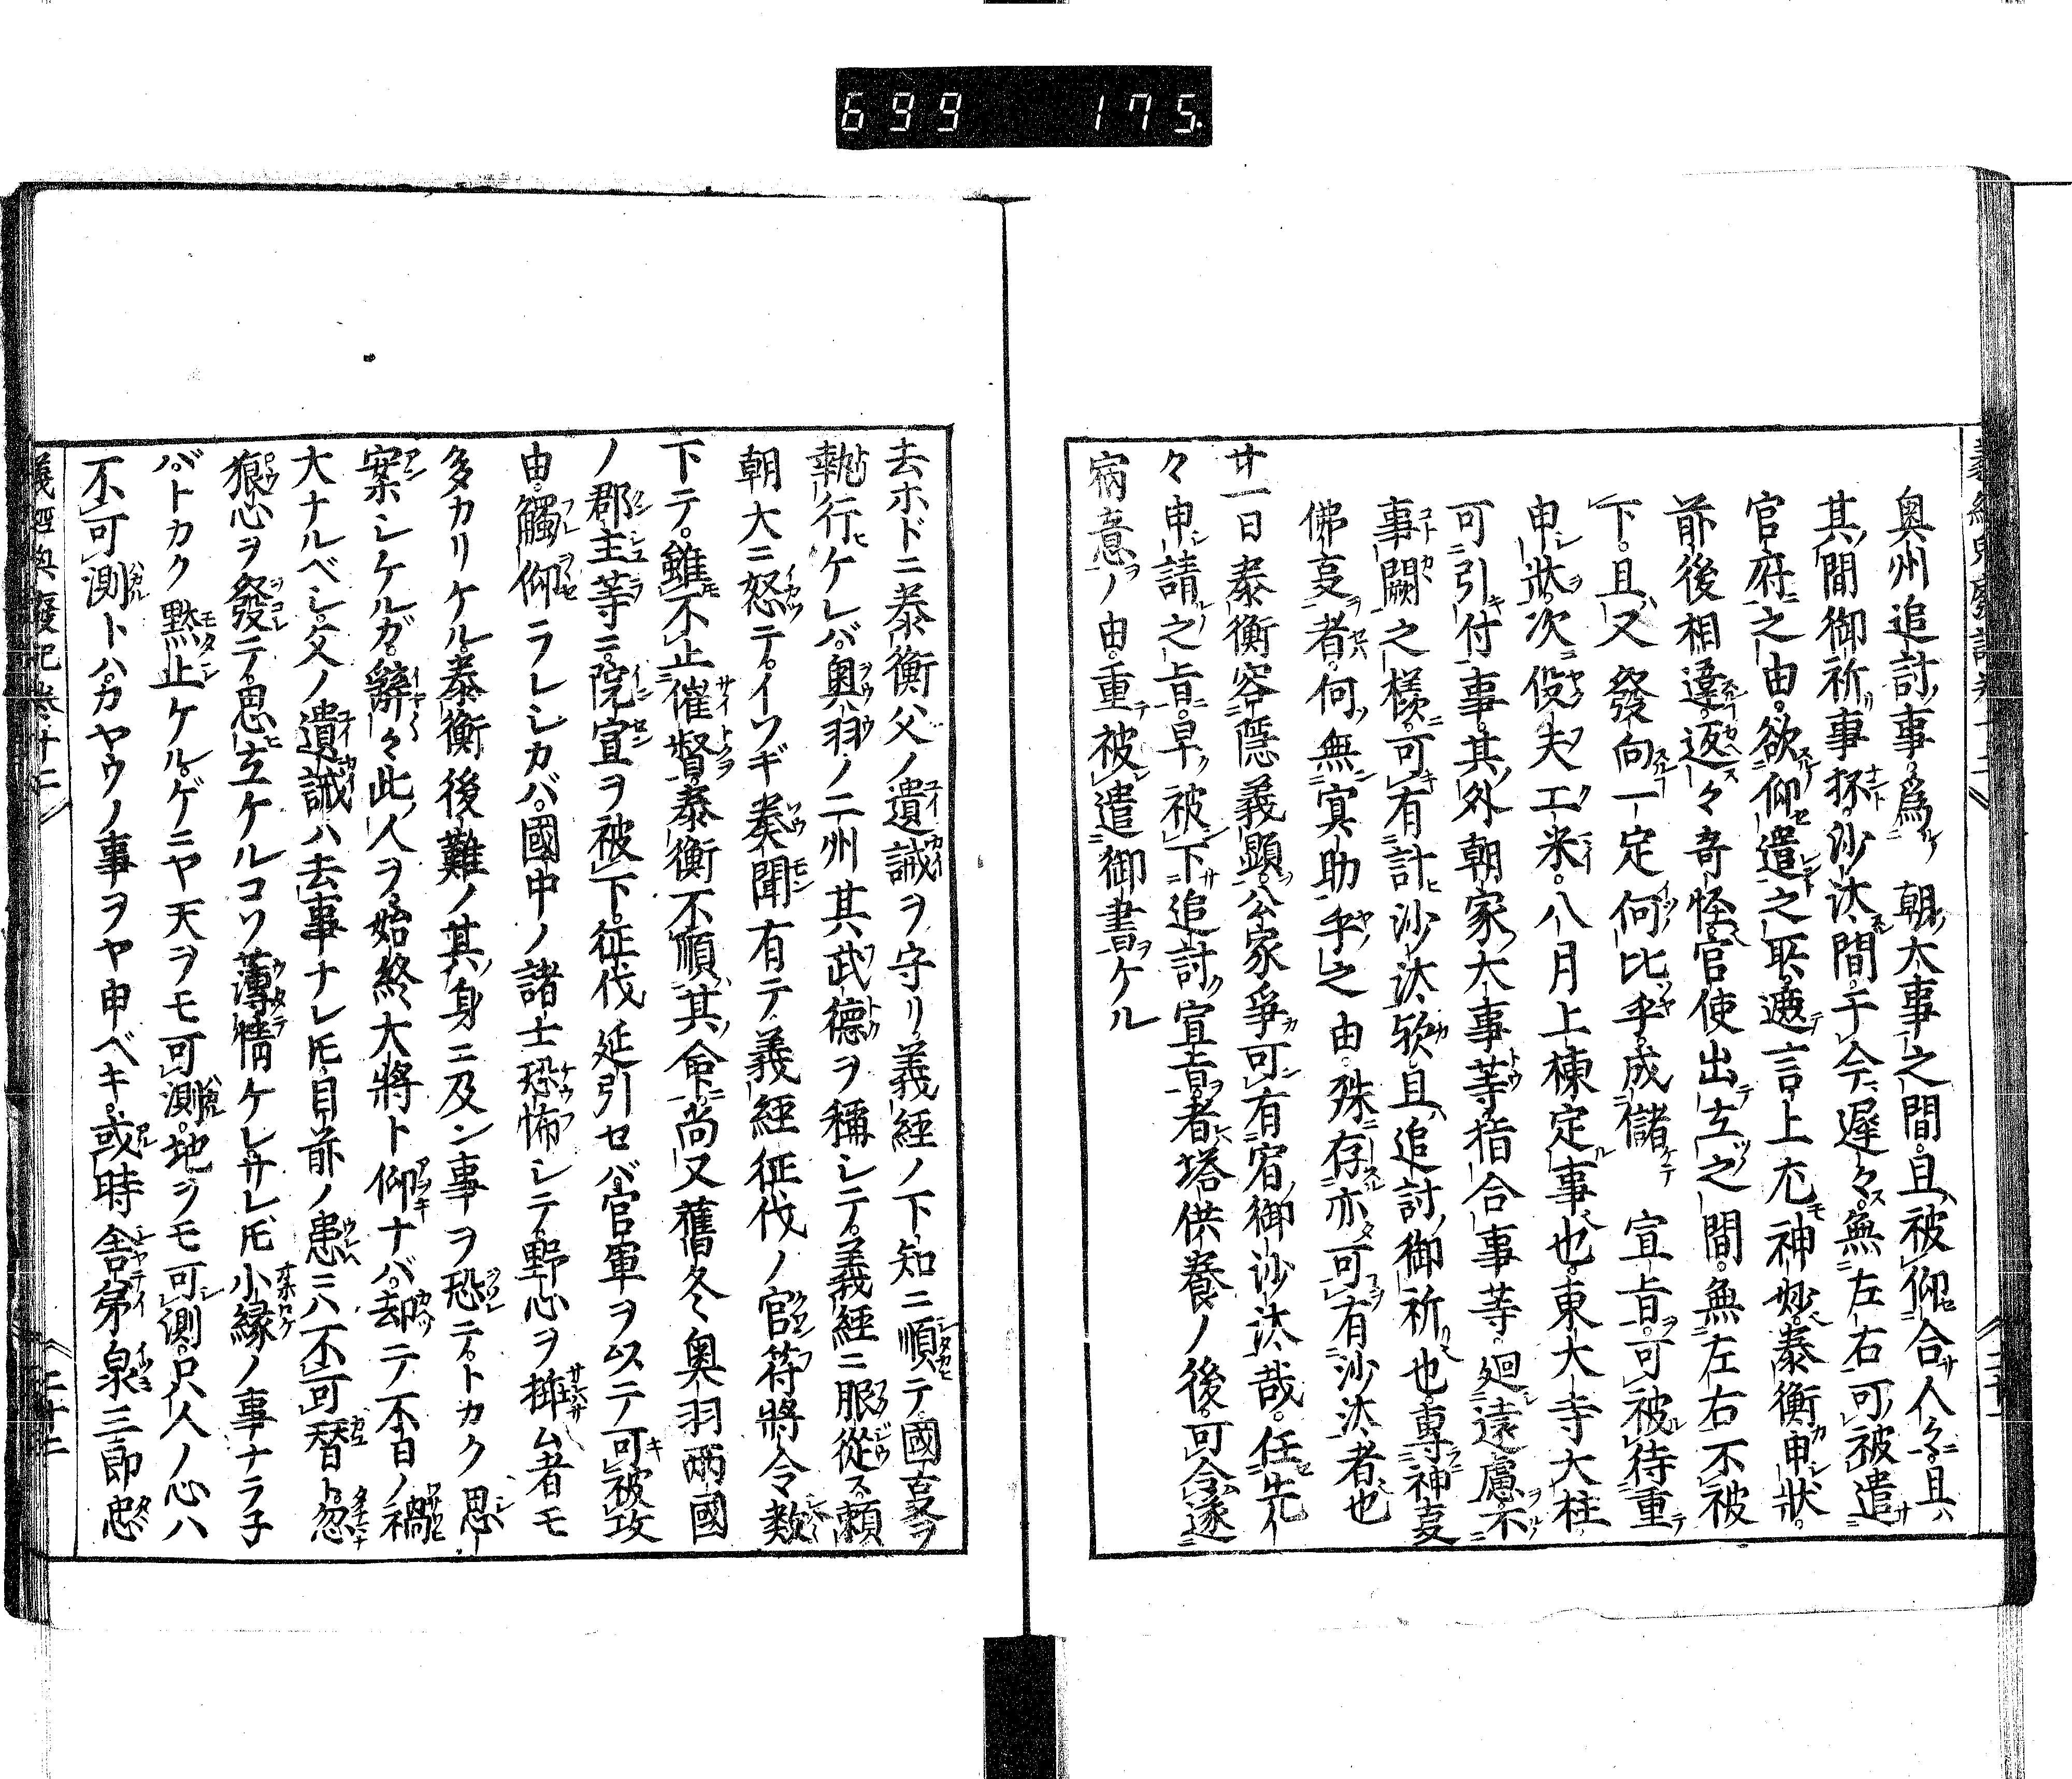 699 175.
奥州追討事。爲 朝大事之間。且被仰合人々。且ハ
其間御祈事抔沙汰間。于今遲々無左右可被遣
官府之由。欲仰遣之耴。遮言上尤神妙。泰衡申狀。
前後相違。返々奇怪。官使出立之間。無左右不被
下。且又發向一定何比乎。成儲 宣旨。可被待重
申狀。次役夫工米。八月上棟定事也。東大寺大柱
可引付事。其外朝家大事等指合事等。廻遠慮不
事闕之樣。可有計沙汰欤。且追討御祈也。專神㕝
佛㕝者。何無冥助乎之由。殊存亦可有沙汰者也
廿一日泰衡容隱義顯。公家爭可有宥御沙汰哉。任先
々申請之旨。早被下追討宣旨者。塔供養ノ後。可令遂
宿意ノ由。重被遣御書ケル
去ホドニ泰衡父ノ遺誡ヲ守リ義經ノ下知ニ順テ國㕝ヲ
執行ケレバ奥羽ノ二州其武德ヲ稱シテ。義經ニ服從ス。頼
朝大ニ怒テ。イソギ奏聞有テ義經征伐ノ官符將令数
下テ。雖不止催督泰衡不順其命。尚又舊冬奥羽兩國
ノ郡主等ニ。院宣ヲ被下。征伐延引セバ官軍ヲ以テ可被攻
由。觸仰ラレシカバ。國中ノ諸士恐怖シテ野心ヲ挿ム者モ
多カリケル。泰衡後難ノ其身ニ及ン事ヲ恐テ。トカク思
案シケルガ。辭々此人ヲ始終大將ト仰ナバ。却テ不日ノ禍
大ナルベシ。父ノ遺誡ハ去事ナレ𪜈目前ノ患ニハ不可替ト。忽
狼心ヲ發テ。思立ケルコソ薄情ケレ。サレ𪜈小縁ノ事ナラ子
バトカク黙止ケル。ゲニヤ天ヲモ可測。地ヲモ可測。只人ノ心ハ
不可測トハ。カヤウノ事ヲヤ申ベキ。或時舎弟泉三郎忠